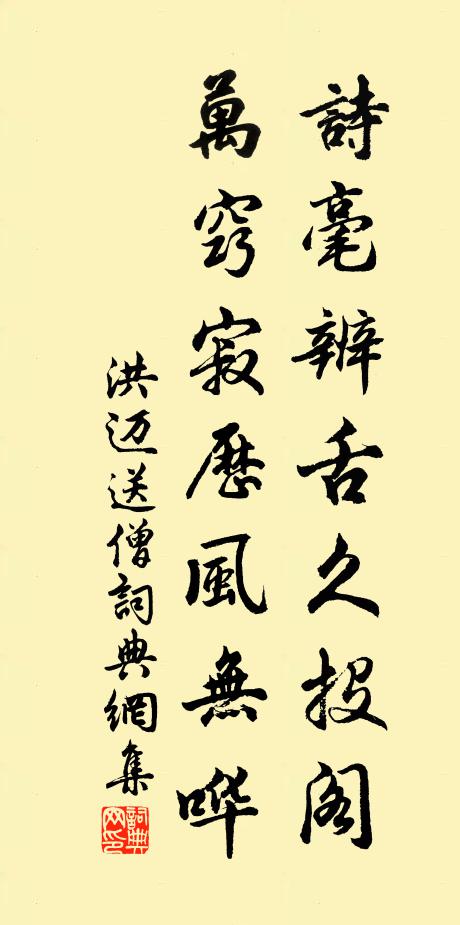 詩毫辨舌久投阁
萬窍寂歷風無哗
洪迈送僧詞典網集
詞典网印